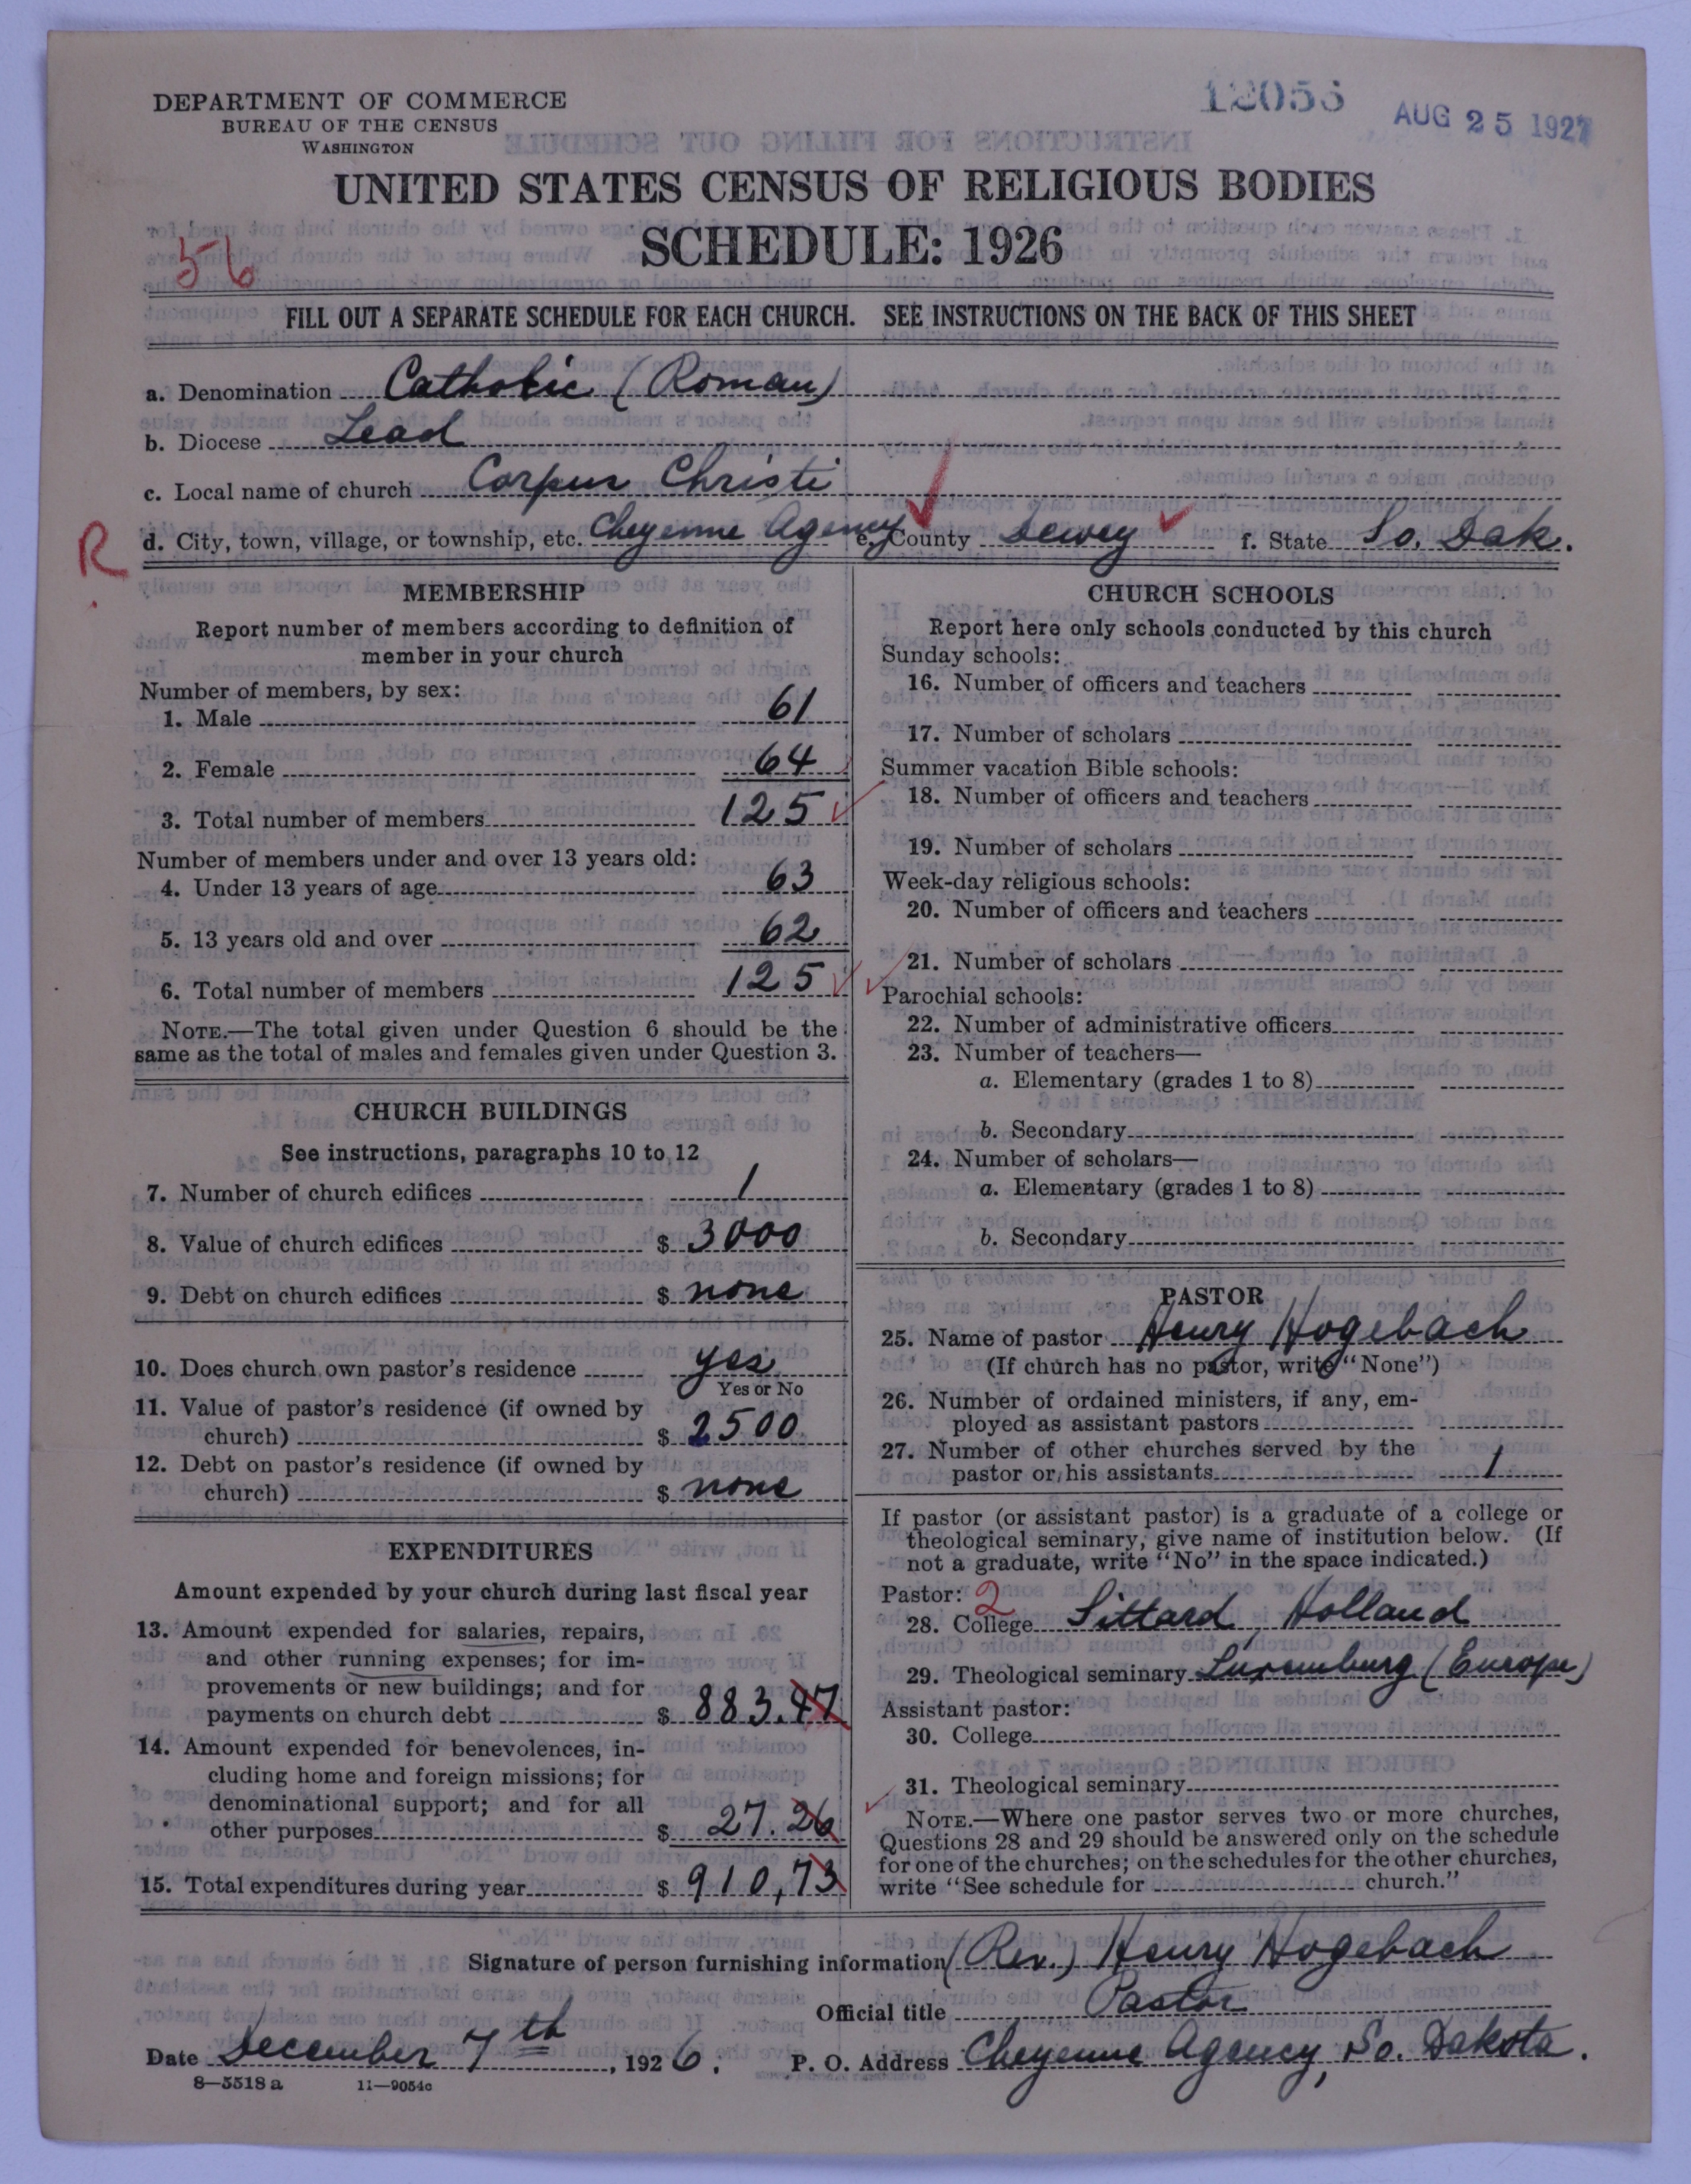 DEPARTMENT OF COMMERCE
BUREAU OF THE CENSUS
WASHINGTON
AUG 25 1927
UNITED STATES CENSUS OF RELIGIOUS BODIES
SCHEDULE: 1926
56
FILL OUT A SEPARATE SCHEDULE FOR EACH CHURCH. SEE INSTRUCTIONS ON THE BACK OF THIS SHEET
a. Denomination Catholic (Roman)
b. Diocese Lead
c. Local name of church Corpus Christi
R d. City, town, village, or township, etc. Cheyenne Agency e. County Dewey f. State So. Dak.
MEMBERSHIP
Report number of members according to definition of
member in your church
Number of members, by sex:
1. Male 61
2. Female 64
3. Total number of members 125
Number of members under and over 13 years old:
4. Under 13 years of age 63
5. 13 years old and over 62
6. Total number of members 125
NOTE.—The total given under Question 6 should be the
same as the total of males and females given under Question 3.
CHURCH BUILDINGS
See instructions, paragraphs 10 to 12
7. Number of church edifices 1
8. Value of church edifices $ 3000
9. Debt on church edifices $ none
10. Does church own pastor's residence yes
Yes or No
11. Value of pastor's residence (if owned by
church) $ 2500
12. Debt on pastor's residence (if owned by
church) $ none
EXPENDITURES
Amount expended by your church during last fiscal year
13. Amount expended for salaries, repairs,
and other running expenses; for im-
provements or new buildings; and for
payments on church debt $ 883.47
14. Amount expended for benevolences, in-
cluding home and foreign missions; for
denominational support; and for all
other purposes $ 27.26
15. Total expenditures during year $ 910,73
CHURCH SCHOOLS
Report here only schools conducted by this church
Sunday schools:
16. Number of officers and teachers
17. Number of scholars
Summer vacation Bible schools:
18. Number of officers and teachers
19. Number of scholars
Week-day religious schools:
20. Number of officers and teachers
21. Number of scholars
Parochial schools:
22. Number of administrative officers
23. Number of teachers—
a. Elementary (grades 1 to 8)
b. Secondary
24. Number of scholars—
a. Elementary (grades 1 to 8)
b. Secondary
PASTOR
25. Name of pastor Henry Hogebach
(If church has no pastor, write "None")
26. Number of ordained ministers, if any, em-
ployed as assistant pastors
27. Number of other churches served by the
pastor or his assistants 1
If pastor (or assistant pastor) is a graduate of a college or
theological seminary, give name of institution below. (If
not a graduate, write "No" in the space indicated.)
Pastor: 2
28. College Sittard, Holland
29. Theological seminary Luxemburg (Europe)
Assistant pastor:
30. College
31. Theological seminary
NOTE.—Where one pastor serves two or more churches,
Questions 28 and 29 should be answered only on the schedule
for one of the churches; on the schedules for the other churches,
write "See schedule for church."
Signature of person furnishing information (Rev.) Henry Hogebach
Official title Pastor
Date December 7th, 1926. P. O. Address Cheyenne Agency, So. Dakota.
8—5518 a 11—9054c